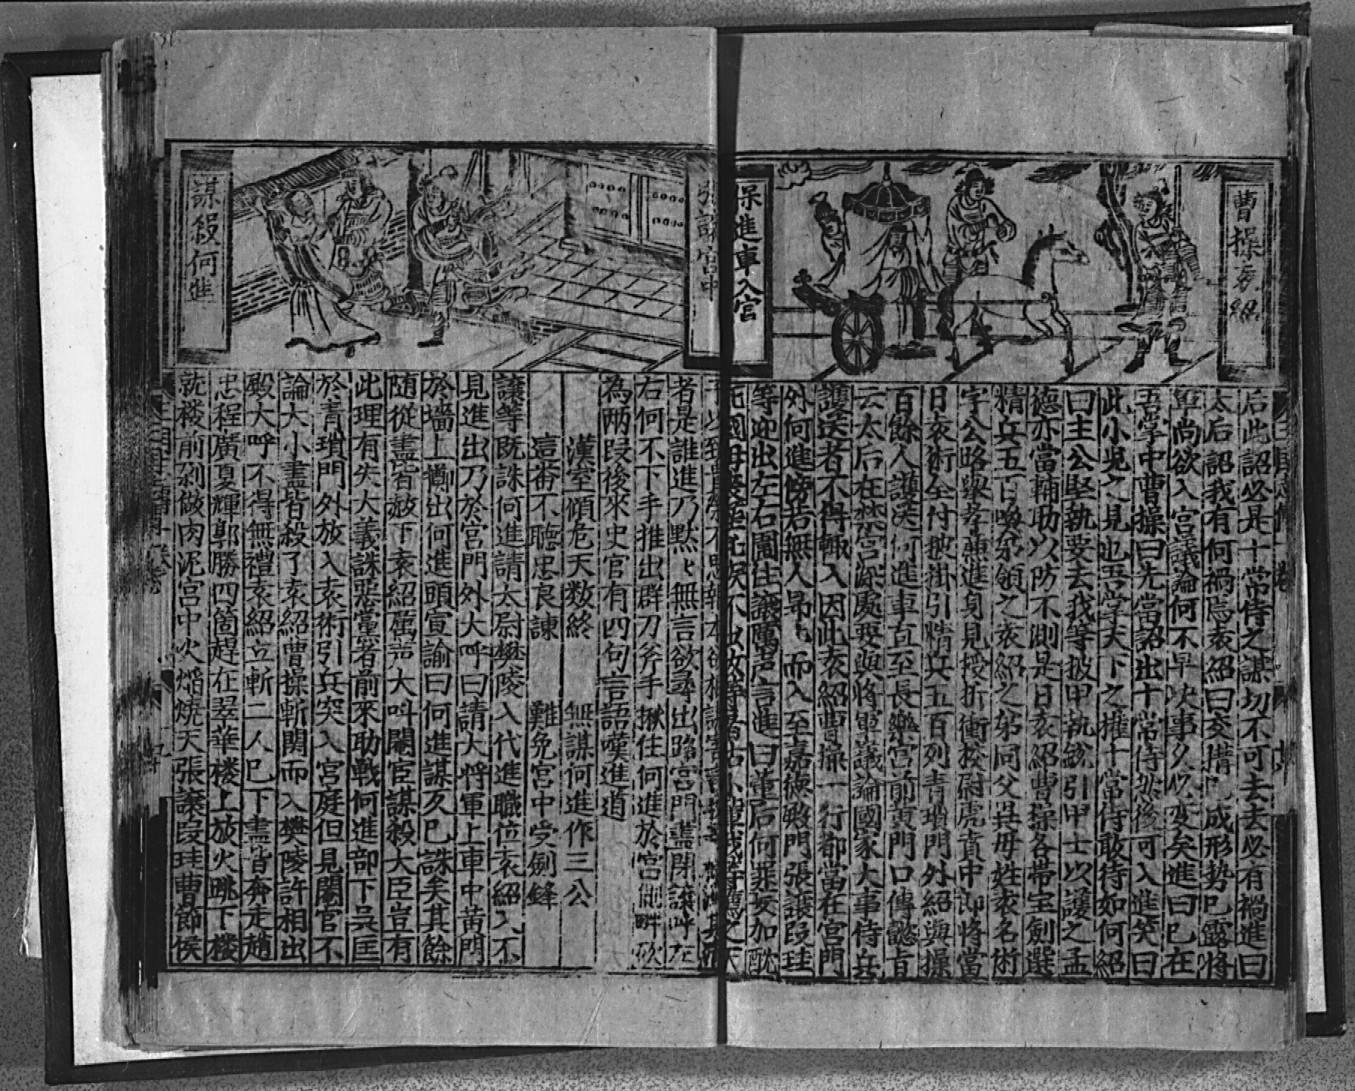 曹操袁紹
保進車入宮
后此詔必是十常侍之謀切不可去去必有禍進曰
太后詔我有何禍隱袁紹曰交搆已成形勢已露將
軍尚欲入宮議論何不早决事久必变矣進曰已在
吾掌中曹操曰先當詔出十常侍然後可入進笑曰
此小児之見也吾掌天下之權十常侍敢待如何紹
曰主公堅執要去我等披甲執銳引甲士以護之孟
德亦當輔助以防不測是日袁紹曹操各帶宝劍選
精兵五百喚弟領之袁紹之弟同父異母姓袁名術
字公路舉孝亷進身見授折衝校尉虎賁中郎將當
日袁術全付披掛引精兵五百列青瑣門外紹與操
百餘人護送何進車直至長樂宮前黄門口傳懿旨
云太后在禁宮深處要與將軍議論國家大事侍兵
護送者不得輒入因此袁紹曹操一行都當在宮門
外何進傍若無人昂昂而入至嘉德殿門張讓段珪
等迎出左右圍住讓厲言進曰董后何罪妄加酖
張讓宮中
謀殺何進
者是誰進乃黙黙無言欲尋出路宮門盡閉讓呼左
右何不下手推出群刀斧手揪住何進於宮側畔砍
為兩段後來史官有四句言語嘆進道
漢室傾危天数終 無謀何進作三公
這畨不聽忠良諫 難免宮中受劍鋒
讓等既誅何進請太尉樊陵入代進職位袁紹入不
見進出乃於宮門外大呼曰請大將軍上車中黄門
於墻上擲出何進頭宣諭曰何進謀反已誅矣其餘
随從盡皆赦下袁紹厲言大叫閹宦謀殺大臣豈有
此理有失大義誅惡黨者前來助戰何進部下吳匡
於青瑣門外放入袁術引兵突入宮庭但見閹官不
論大小盡皆殺了袁紹曹操斬関而入樊陵許相出
殿大呼不得無禮袁紹立斬二人已下盡皆奔走趙
忠程廣夏輝郭勝四箇趕在翠華楼上放火眺下楼
就楼前剁做肉泥宮中火焰燒天張讓段珪曹節侯